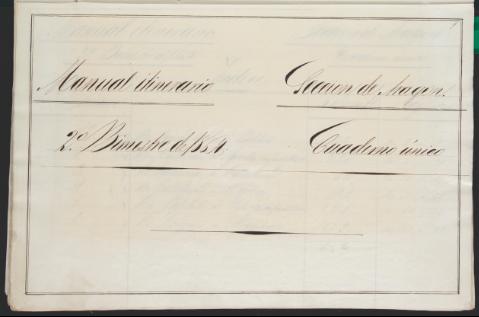 Manual itinerario
Seccion de Magen.
2º Bimestre de 1884.
Cuaderno único